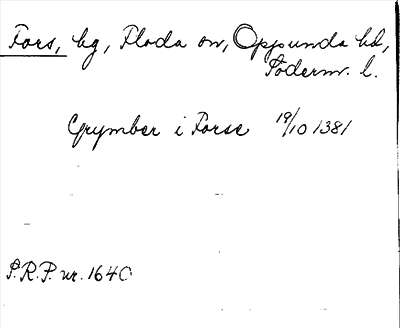 Fors, hg, Floda sn, Oppunda hd,
Söderm. l.
Grymber i Forse 19/10 1381
S.R.P. nr. 1640